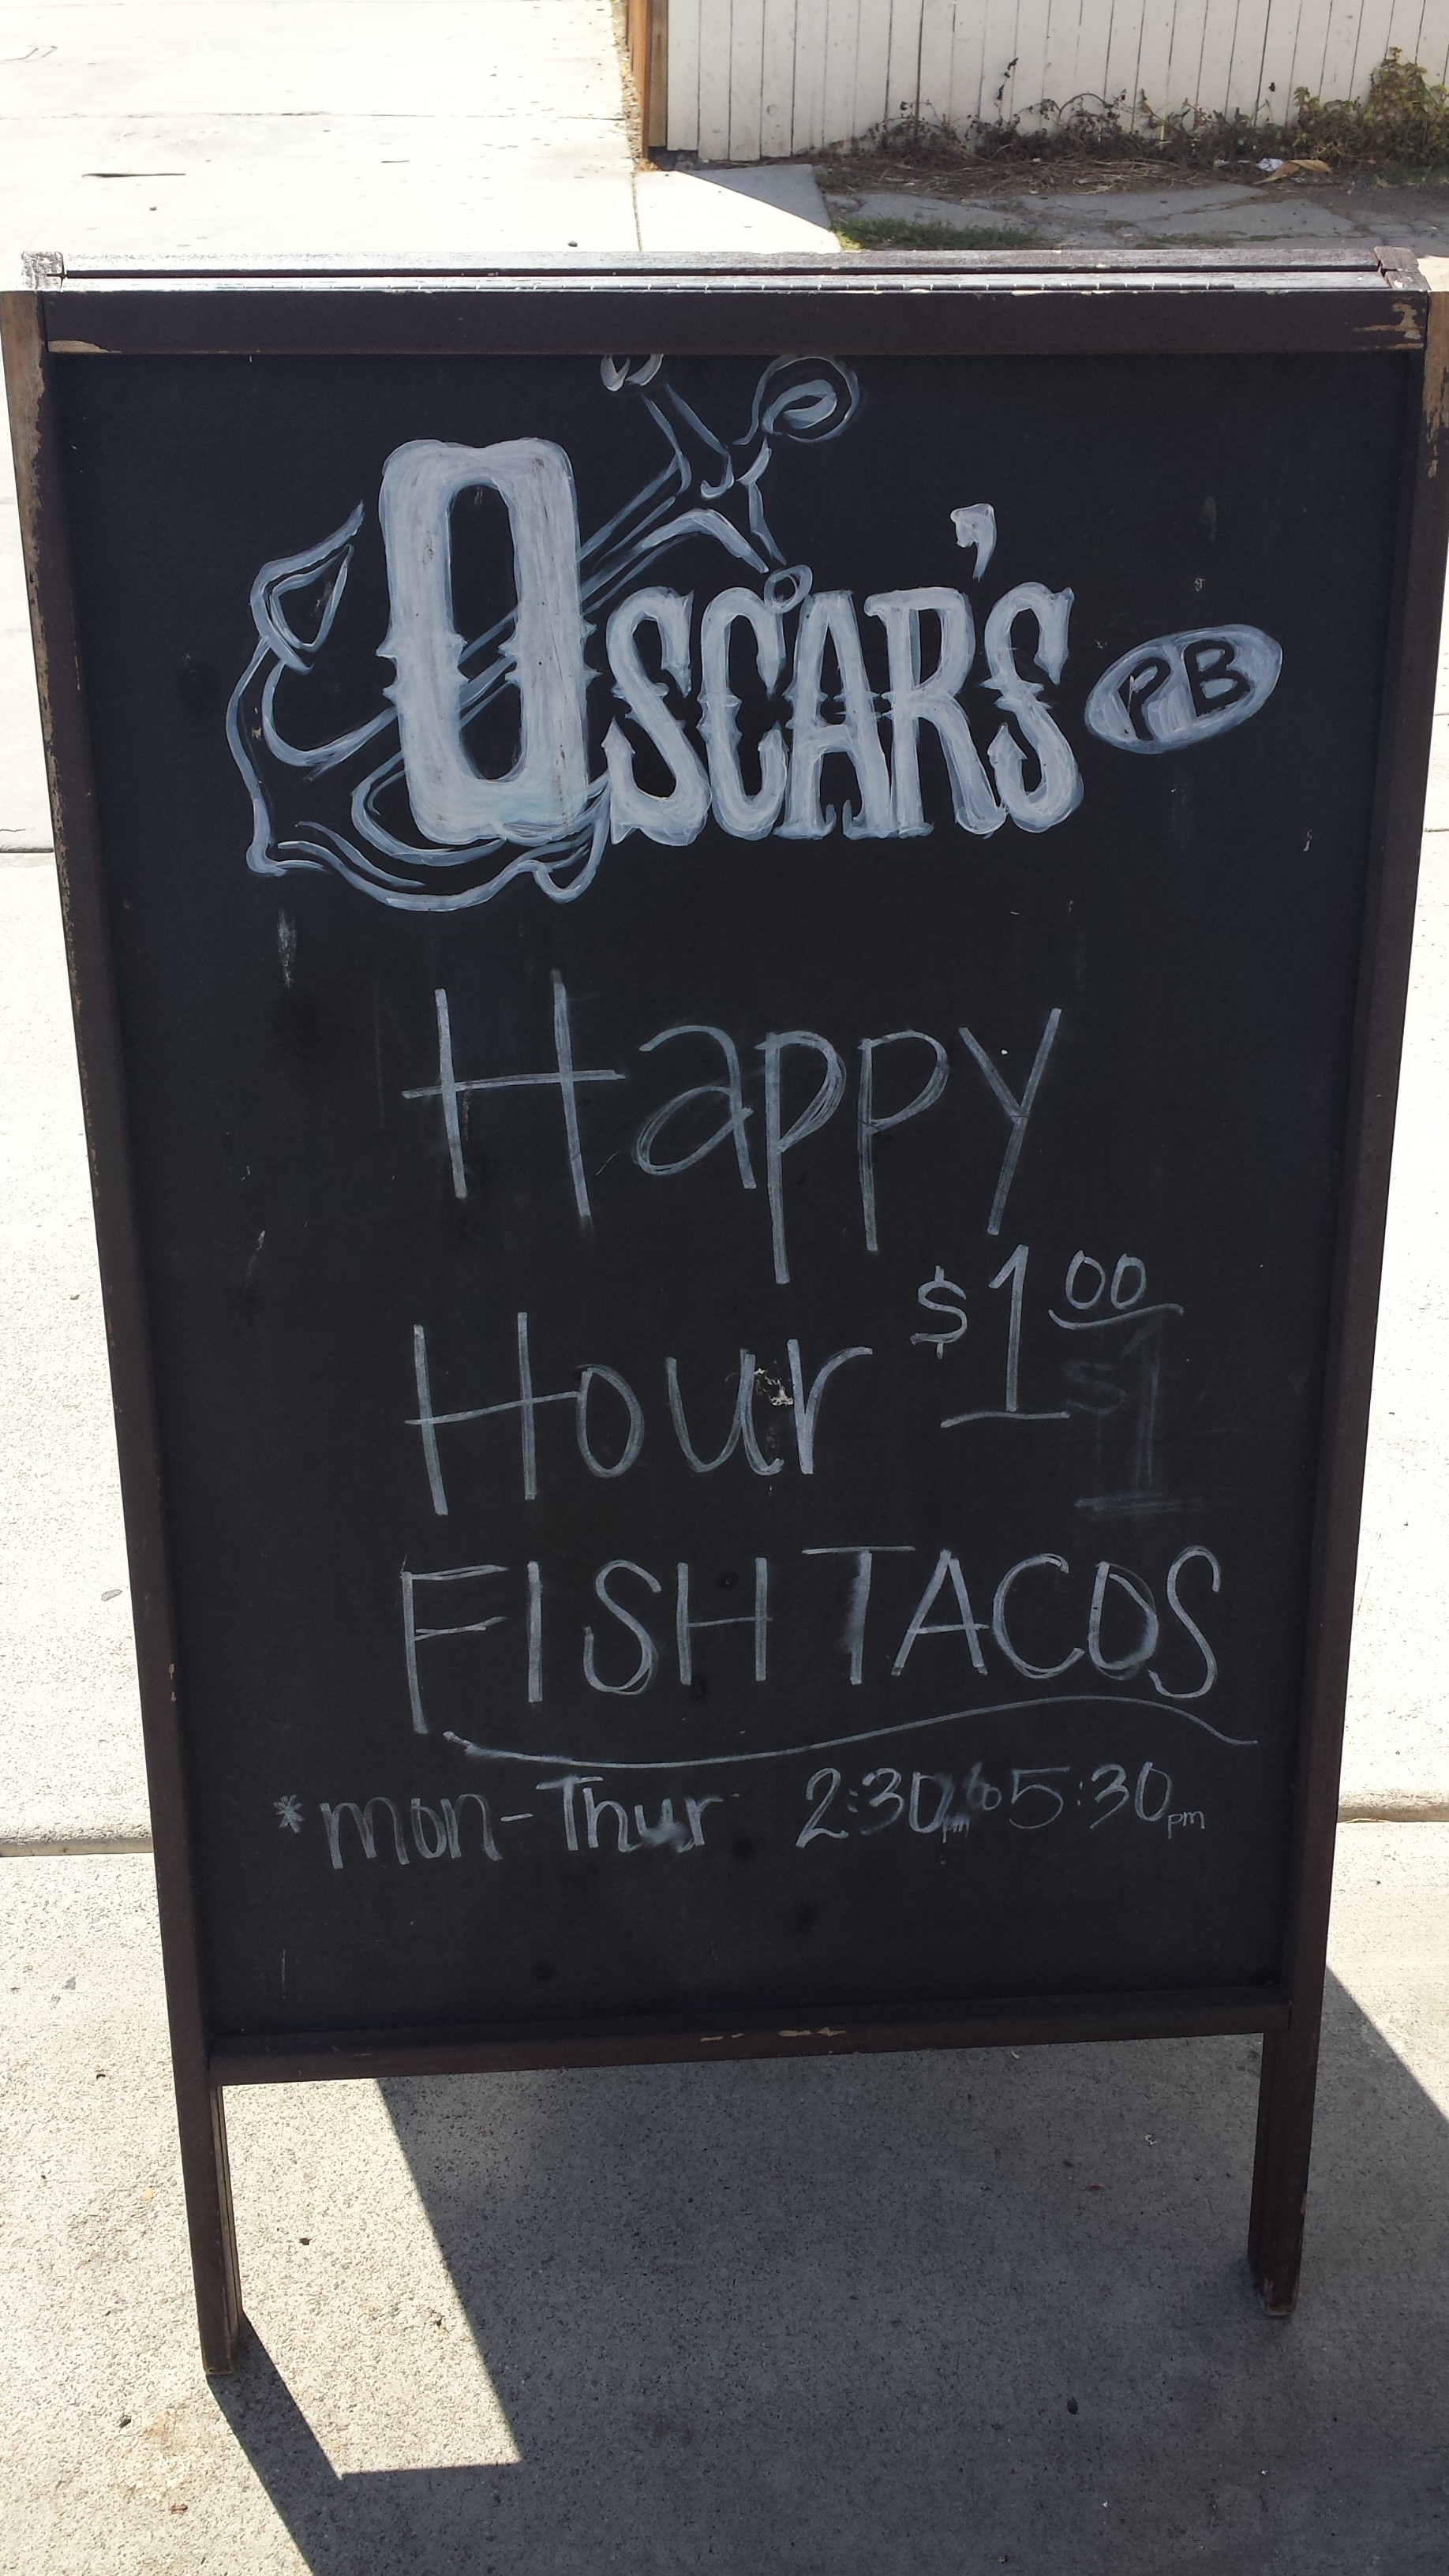 OSCAR'S PB
Happy
Hour $1.00
FISH TACOS
*mon-Thur 2:30pm to 5:30pm